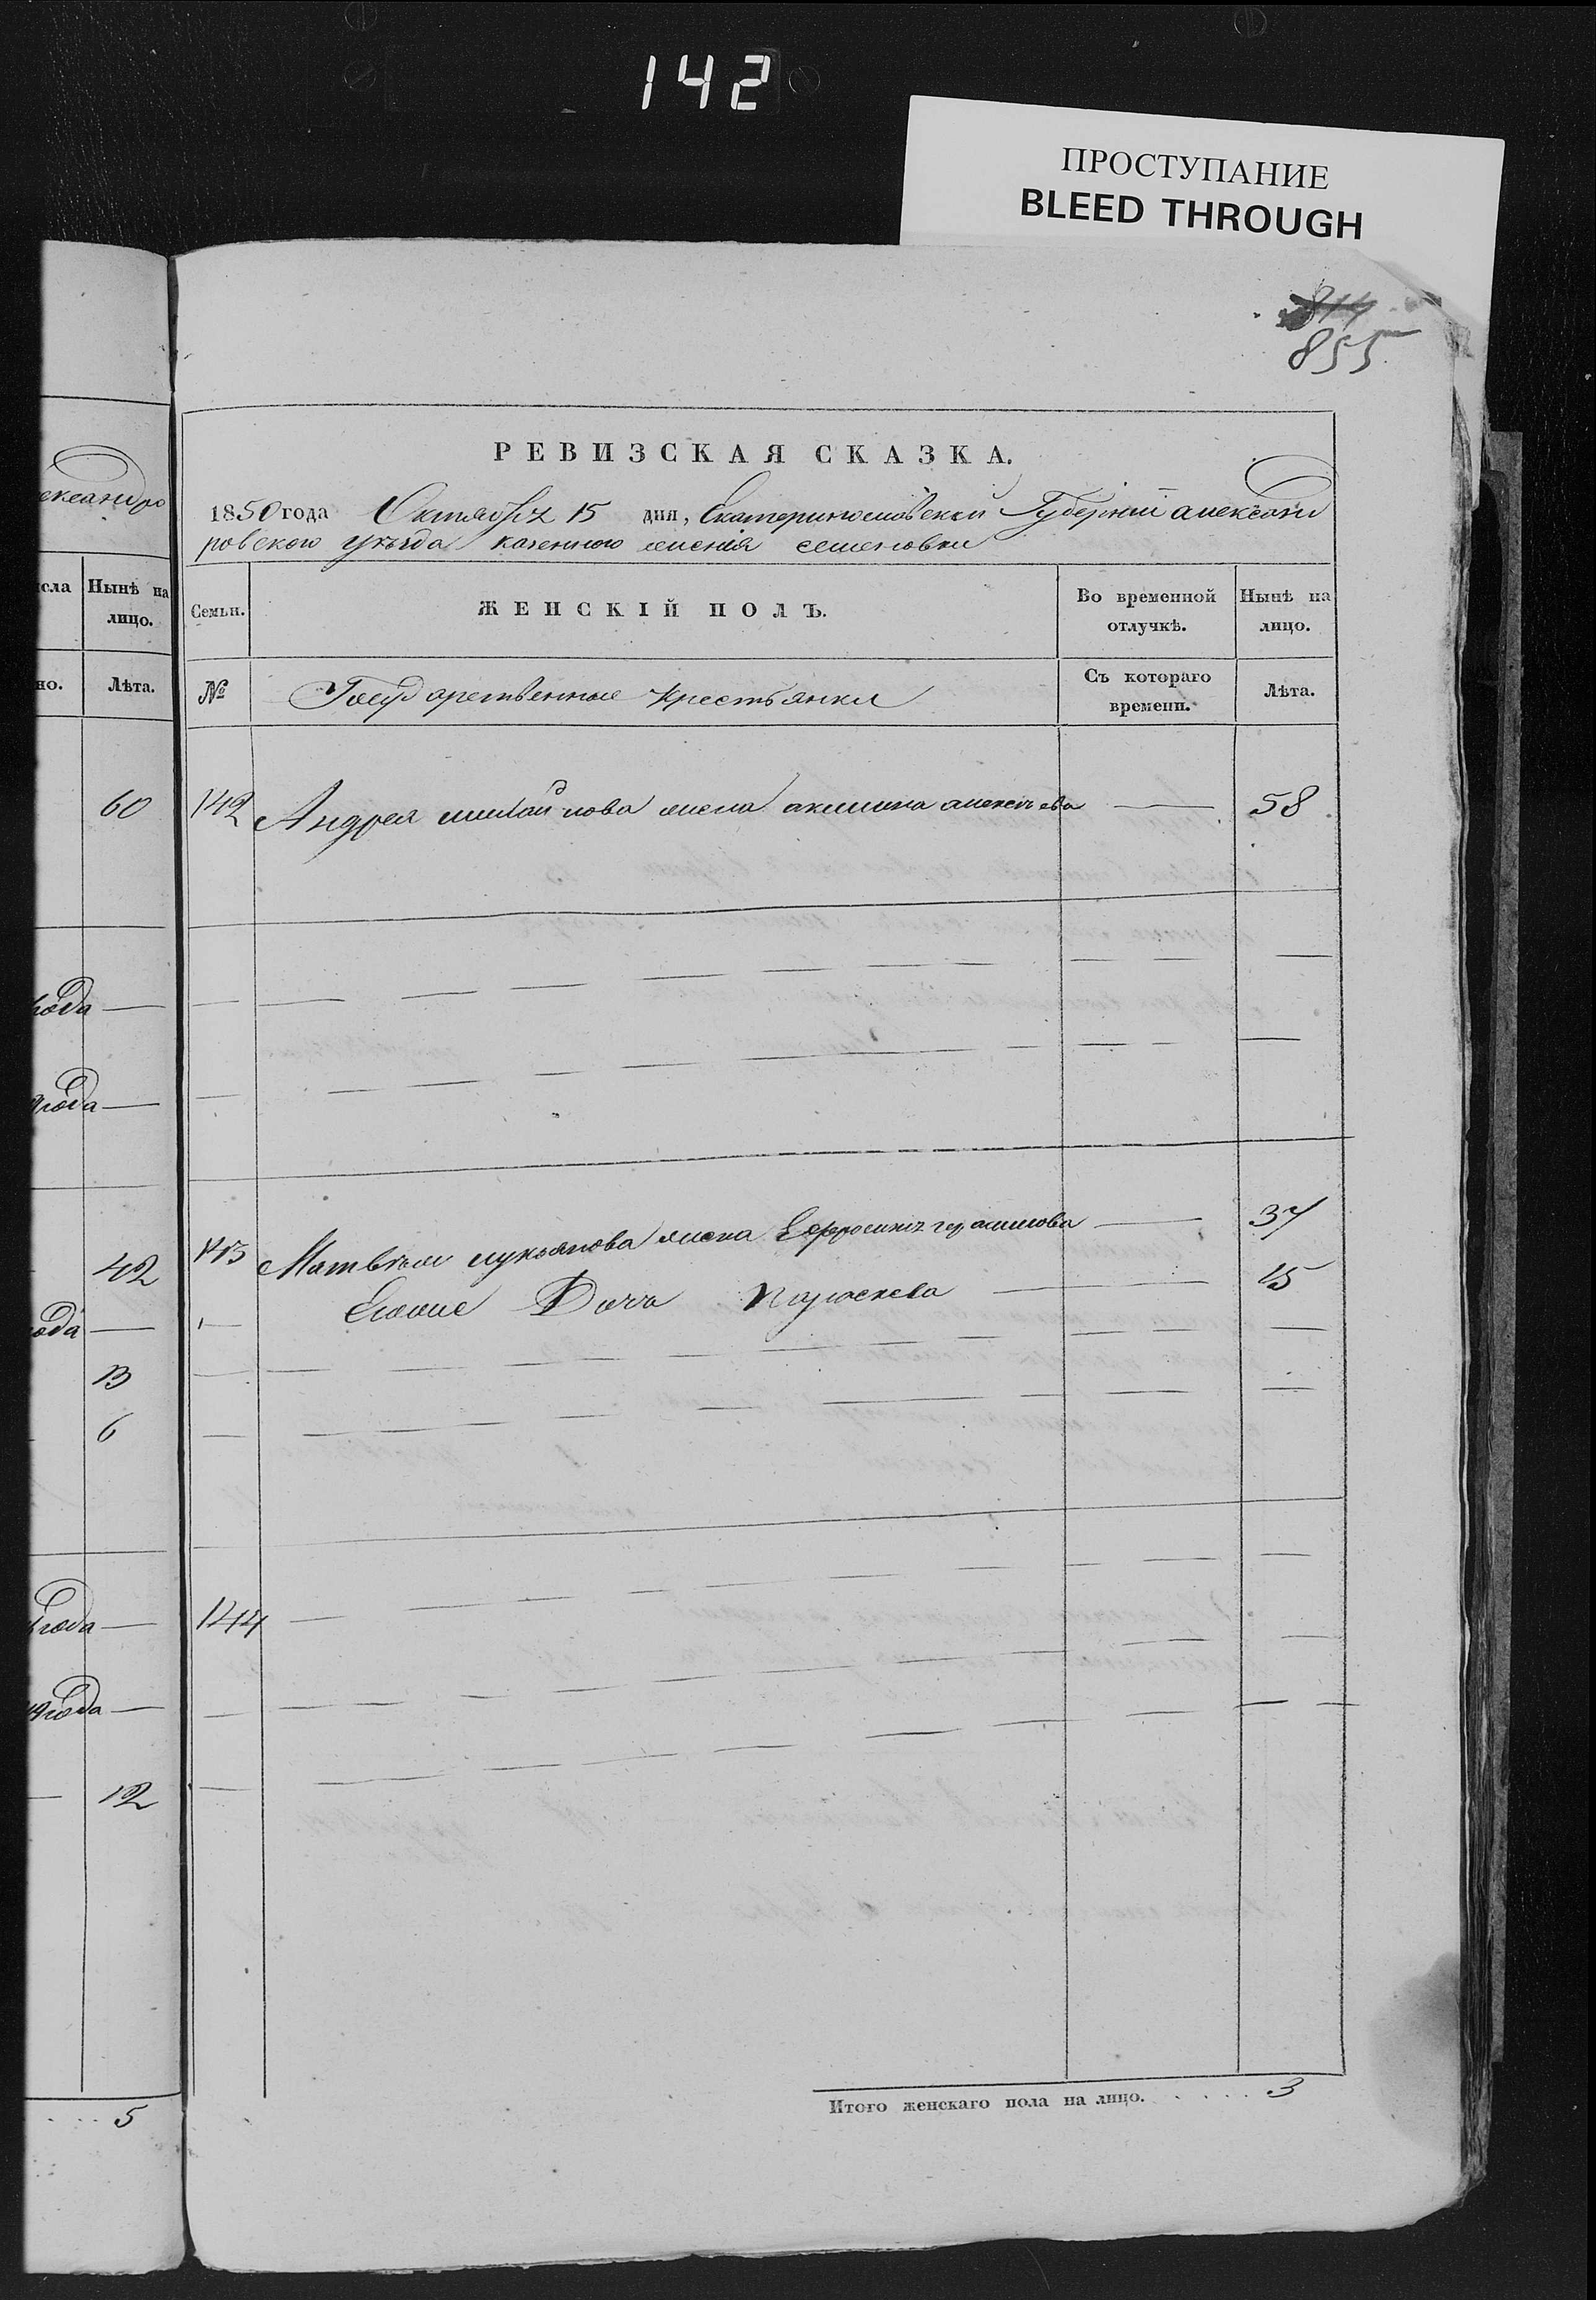 142
ПРОСТУПАНИЕ
BLEED THROUGH
814
855
РЕВИЗСКАЯ СКАЗКА.
1850 года Октября 15 дня, Екатеринославской Губернии александ
ровского уезда казенного селения семеновки
Семьи.
ЖЕНСКІЙ ПОЛЪ.
Во временной отлучкѣ.
Нынѣ на лицо.
№
Государственные крестьянки
Съ котораго времени.
Лѣта.
142 Андрея михайлова жена акилина алексѣева — 58
143 Матвѣя лукьянова жена Ефросинія герасимова — 37
Егоже Дочь Параскева — 15
144
Итого женскаго пола на лицо. . . . . . 3
ександро
исла
Нынѣ на лицо.
но.
Лѣта.
60
года —
года —
42
года —
13
6
года —
49 года —
12
5